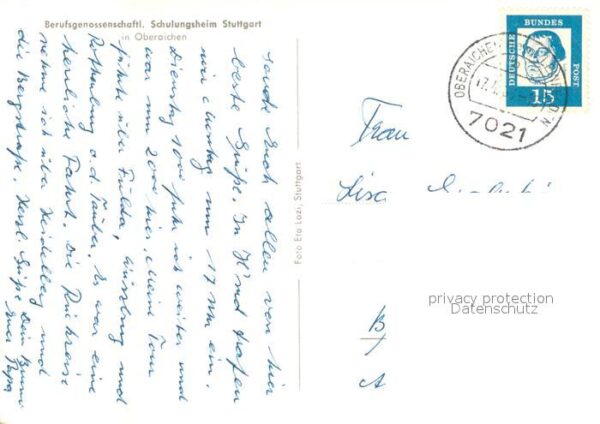 Berufsgenossenschaftl. Schulungsheim Stuttgart
in Oberaichen
sende Euch allen von hier
beste Grüße. In
wir Montag um 17 Uhr ein.
Dienstag fuhr ich weiter und
war um 2000 hier. Meine Tour
führte über Fulda, Würzburg und
Rothenburg o.d. Tauber. Es war eine
herrliche Fahrt. Die Rückreise
nehme ich über Heidelberg und
die Bergstraße. Herzl. Grüße Dein
Euer Papa
Foto Era Lazi, Stuttgart
DEUTSCHE BUNDES POST
15
OBERAICHEN
17.
7021
Frau
Lisa
B
A
privacy protection
Datenschutz